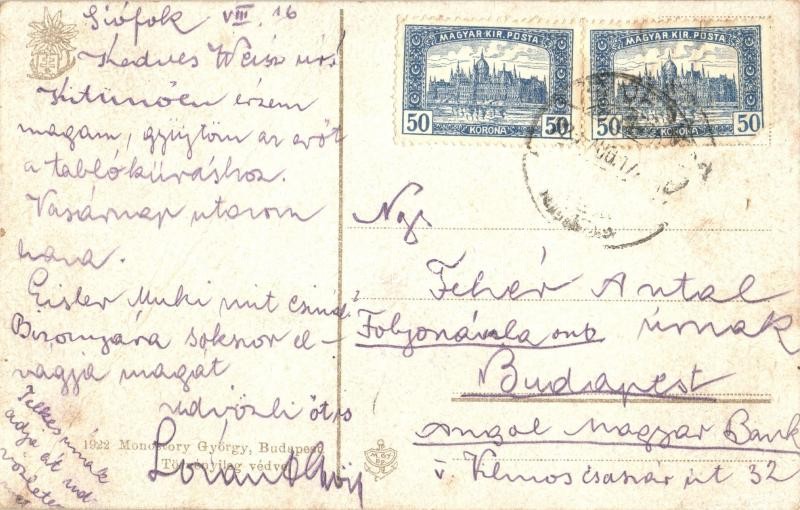 Siófok VIII. 16
Kedves Weisz úr!
Kitünően érzem
magam, gyüjtöm az erőt
a tablókiíráshoz.
Vasárnap utazom
haza.
Eisler Muki mit csinál?
Bizonyára sokszor el-
vágja magát
üdvözli őt is
Telkes úrnák
adja át üd-
vözletem
1922 Monostory György, Budapest
Törvényileg védve
MAGYAR KIR. POSTA
50 50
KORONA
MAGYAR KIR. POSTA
50 50
KORONA
Ngs
Fehér Antal
úrnak
Budapest
Angol Magyar Bank
V Vilmos Császár út 32